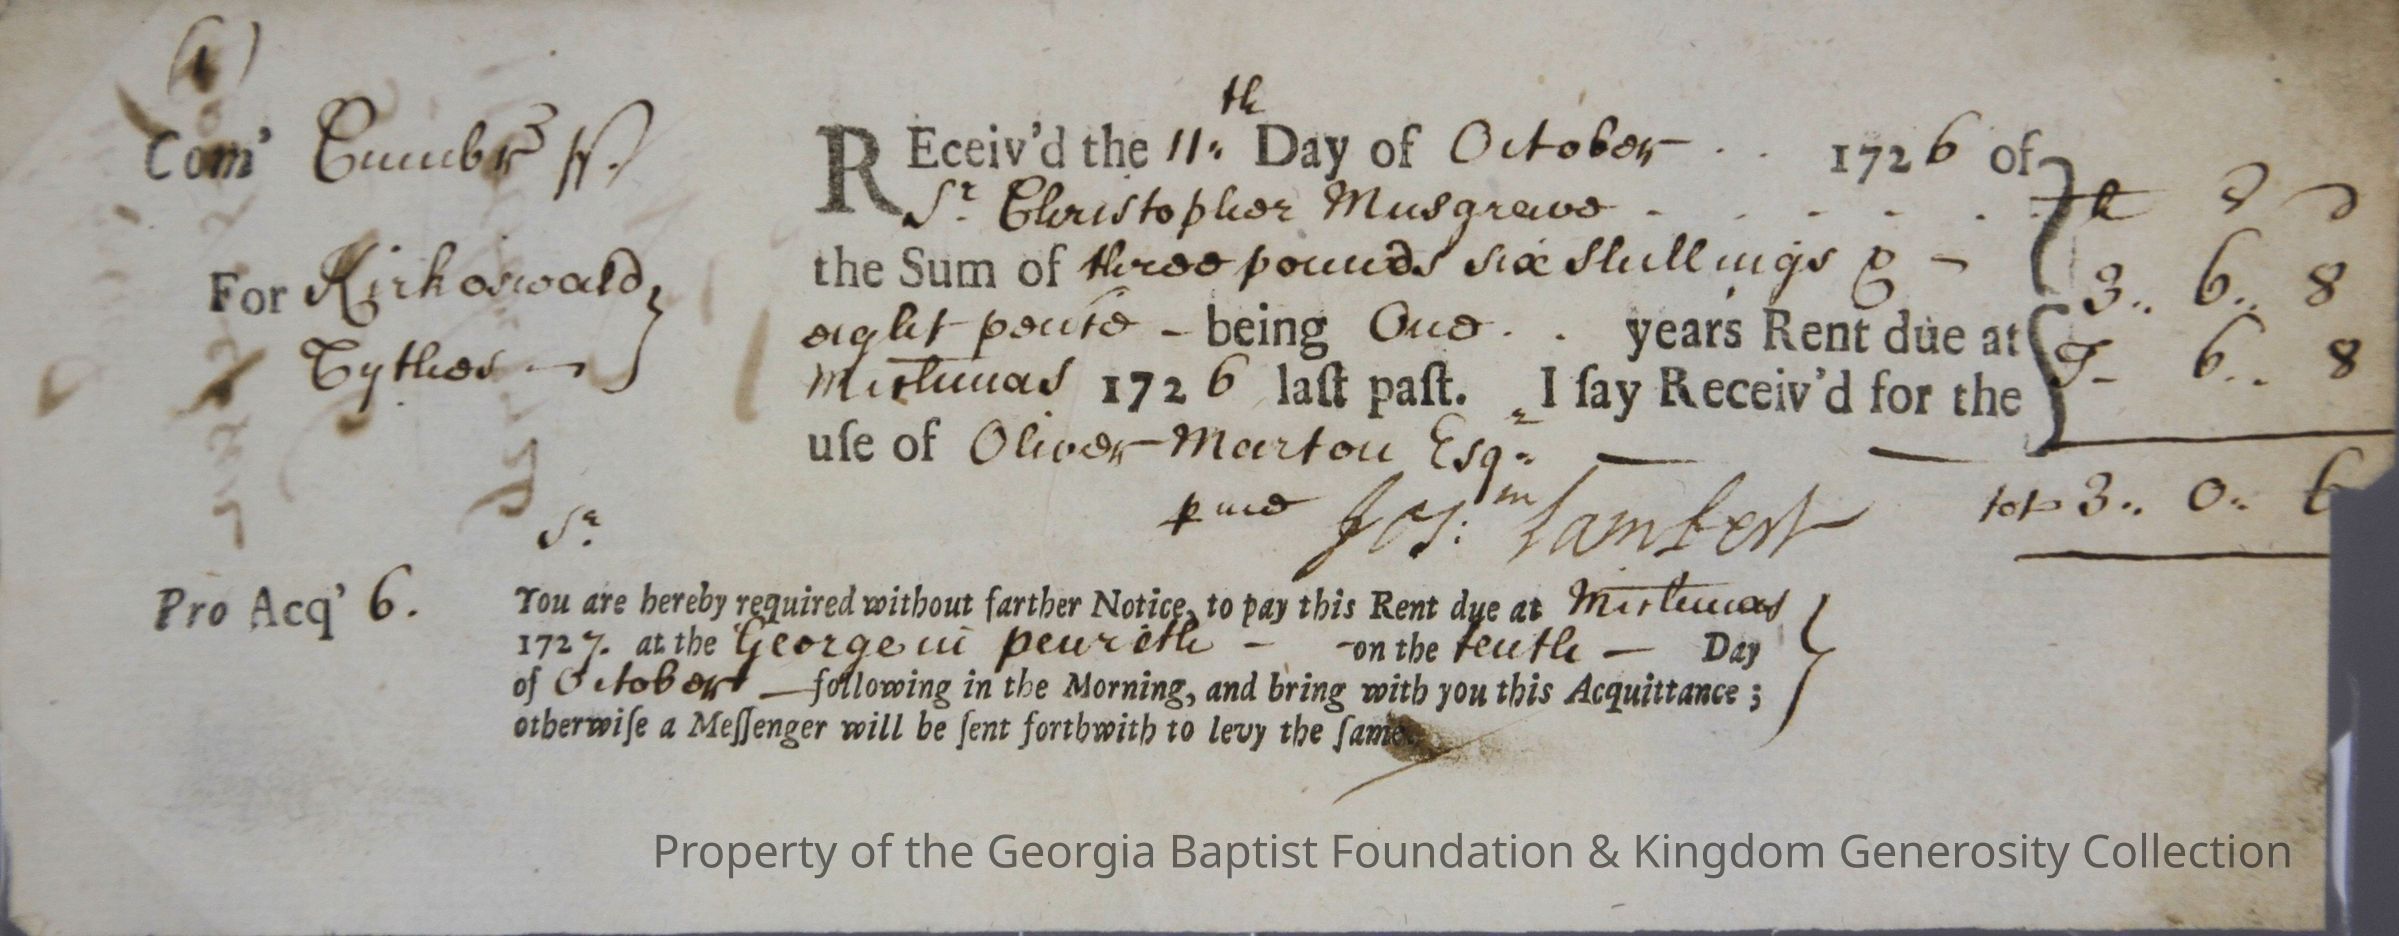 (1)
Com' Cumbr ss.
REceiv'd the 11th Day of October 1726 of
Sr. Christopher Musgrave
the Sum of three pounds six shillings &
eight pence - being One years Rent due at
Michmas 1726 laſt paſt. I ſay Receiv'd for the
uſe of Oliver Marton Esqr
p me Jos: Lambert
For Kirkoswald
Tythes
li s d
3 .. 6 .. 8
6 .. 8
3 .. 0 .. 
Pro Acq' 6.
Sr.
You are hereby required without farther Notice, to pay this Rent due at Michmas
1727. at the George in penrith - on the tenth — Day
of October — following in the Morning, and bring with you this Acquittance ;
otherwiſe a Meſſenger will be ſent forthwith to levy the ſame.
Property of the Georgia Baptist Foundation & Kingdom Generosity Collection